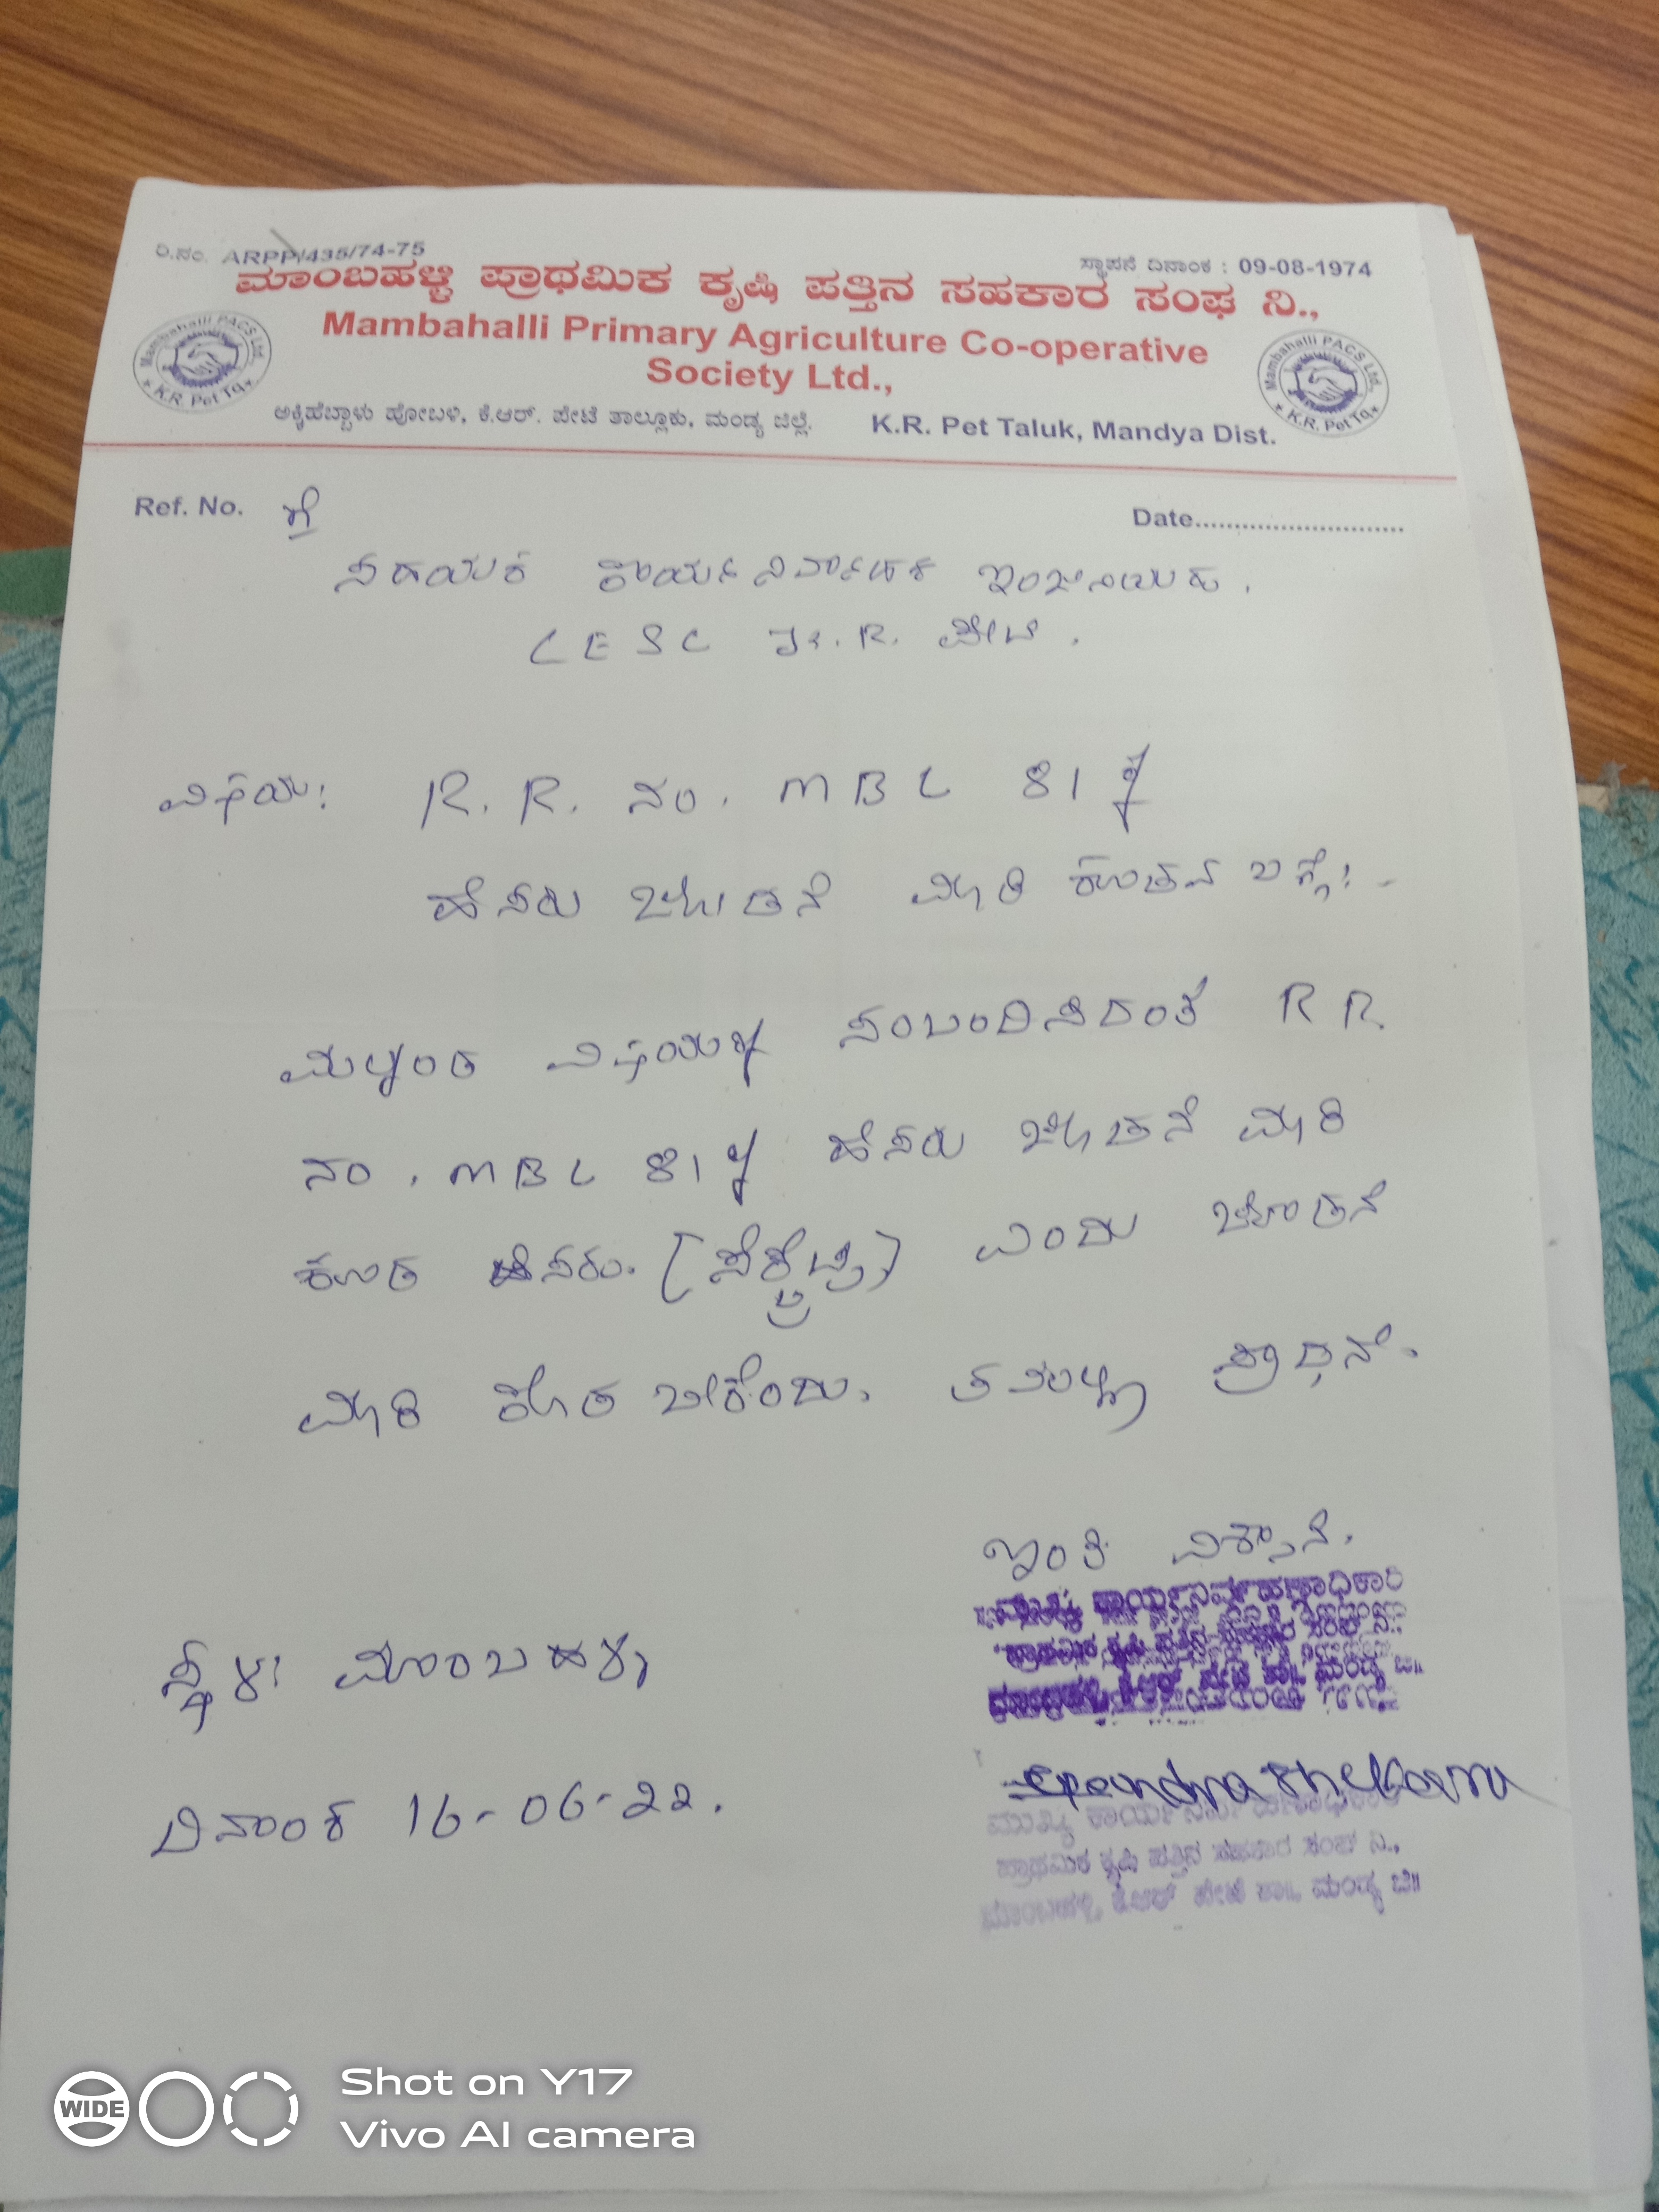 ರಿ.ನಂ. ARPP/435/74-75
ಸ್ಥಾಪನೆ ದಿನಾಂಕ : 09-08-1974
ಮಾಂಬಹಳ್ಳಿ ಪ್ರಾಥಮಿಕ ಕೃಷಿ ಪತ್ತಿನ ಸಹಕಾರ ಸಂಘ ನಿ.,
Mambahalli Primary Agriculture Co-operative
Society Ltd.,
Mambahalli PACS Ltd. K.R. Pet Tq.
Mambahalli PACS Ltd. K.R. Pet Tq.
ಅಕ್ಕಿಹೆಬ್ಬಾಳು ಹೋಬಳಿ, ಕೆ.ಆರ್. ಪೇಟೆ ತಾಲ್ಲೂಕು, ಮಂಡ್ಯ ಜಿಲ್ಲೆ. K.R. Pet Taluk, Mandya Dist.
Ref. No. ಗೆ
Date...........................
ಸಹಾಯಕ ಕಾರ್ಯನಿರ್ವಾಹಕ ಇಂಜಿನಿಯರು.
CESC K.R. ಪೇಟೆ.
ವಿಷಯ: R.R. ನಂ. MBL 81 ಕ್ಕೆ
ಹೆಸರು ಜೋಡಣೆ ಮಾಡಿ ಕೊಡುವ ಬಗ್ಗೆ:-
ವಿಷಯಕ್ಕೆ ಸಂಬಂದಿಸಿದಂತೆ R R.
ನಂ. MBL 81 ಕ್ಕೆ ಹೆಸರು ಜೋಡಣೆ ಮಾಡಿ
ಹೆಸರು. ಎಂದು ಜೋಡಣೆ
ಮಾಡಿ ಕೊಡ ಬೇಕೆಂದು. ತಮ್ಮಲ್ಲಿ ಪ್ರಾರ್ಥನೆ.
ಇಂತಿ ವಿಶ್ವಾಸಿ.
ಮುಖ್ಯ ಕಾರ್ಯನಿರ್ವಹಣಾಧಿಕಾರಿ
ಪ್ರಾಥಮಿಕ ಕೃಷಿ ಪತ್ತಿನ ಸಹಕಾರ ಸಂಘ ನಿ.,
ಮಾಂಬಹಳ್ಳಿ, ಕೆ.ಆರ್ ಪೇಟೆ ತಾ॥, ಮಂಡ್ಯ ಜಿ॥
ಸ್ಥಳ: ಮಾಂಬಹಳ್ಳಿ
ದಿನಾಂಕ 16-06-22.
ಮುಖ್ಯ ಕಾರ್ಯನಿರ್ವಹಣಾಧಿಕಾರಿ
ಪ್ರಾಥಮಿಕ ಕೃಷಿ ಪತ್ತಿನ ಸಹಕಾರ ಸಂಘ ನಿ.,
ಮಾಂಬಹಳ್ಳಿ, ಕೆ.ಆರ್ ಪೇಟೆ ತಾ॥, ಮಂಡ್ಯ ಜಿ॥
WIDE
Shot on Y17
Vivo AI camera